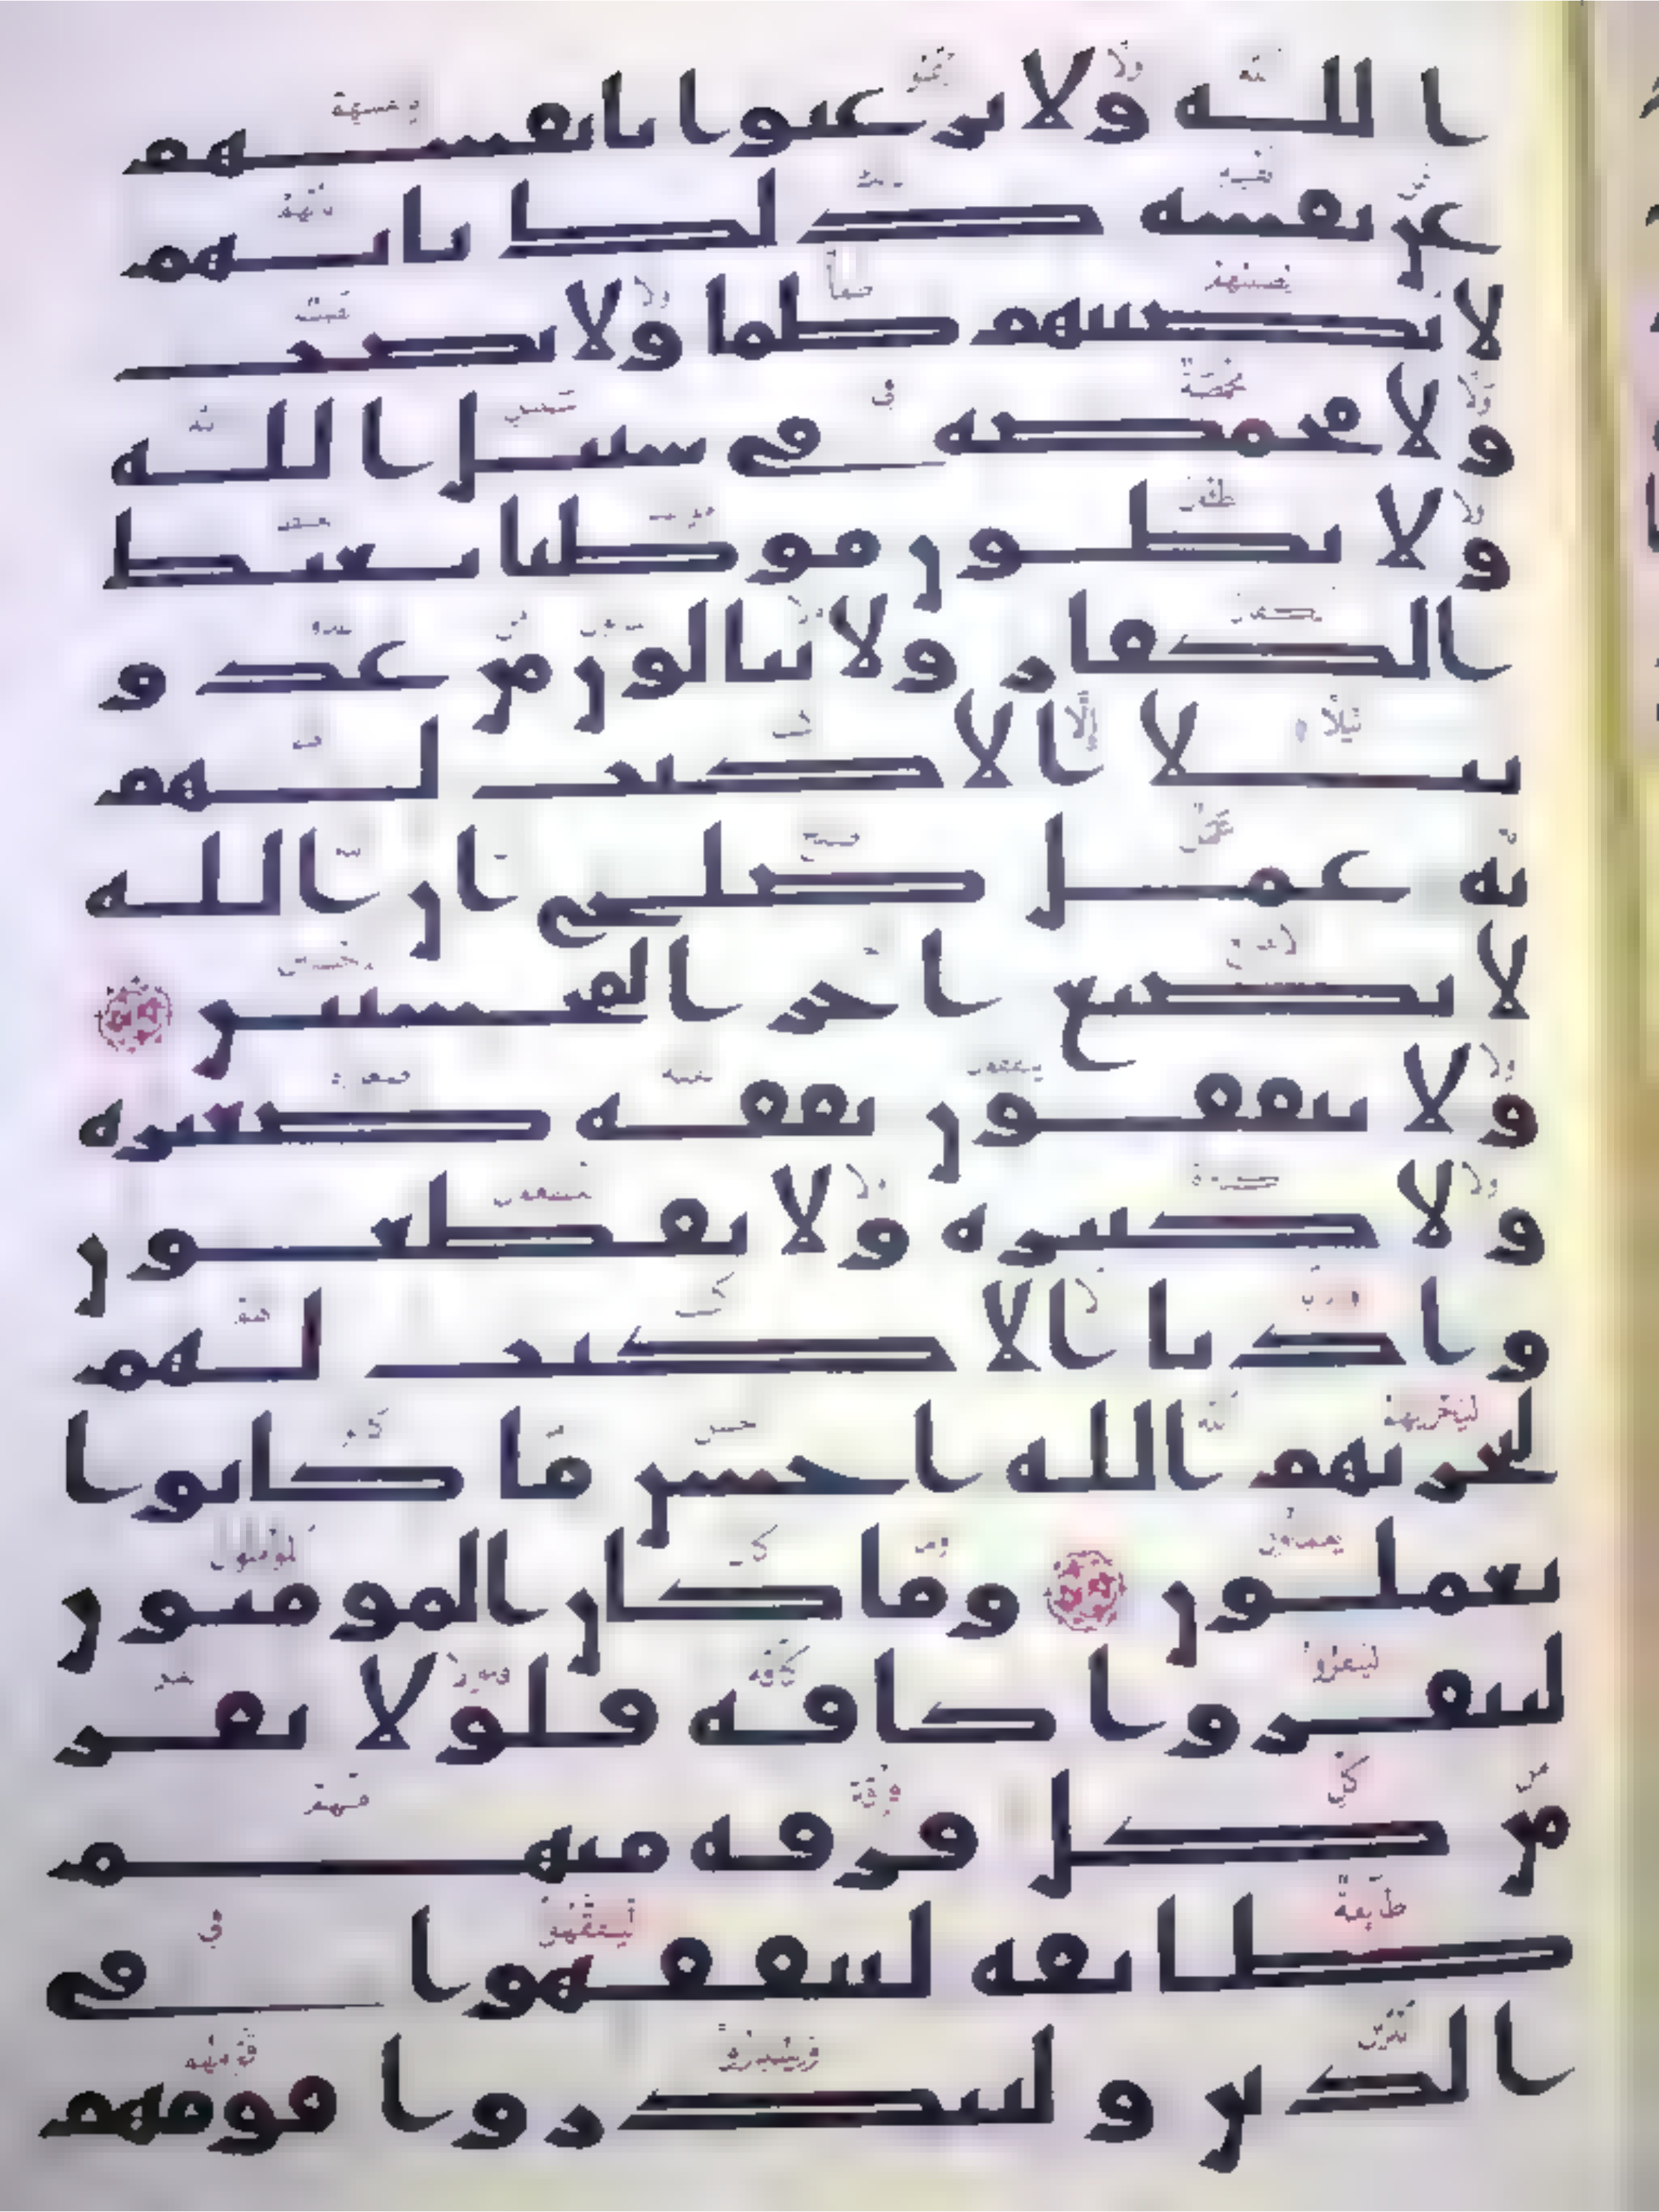 الله ولا يرغبوا بانفسهم
عن نفسه ذلك بانهم
لا يصيبهم ظما ولا نصب
ولا مخمصه في سبيل الله
ولا يطون موطيا يغيظ
الكفار ولا ينالون من عدو
نيلا الا كتب لهم
به عمل صلح ان الله
لا يضيع اجر المحسنين
ولا ينفقون نفقه صغيره
ولا كبيره ولا يقطعون
واديا الا كتب لهم
ليجزيهم الله احسن ما كانوا
يعملون وما كان المومنون
لينفروا كافه فلولا نفر
من كل فرقه منهم
طايفه ليتفقهوا في
الدين ولينذروا قومهم